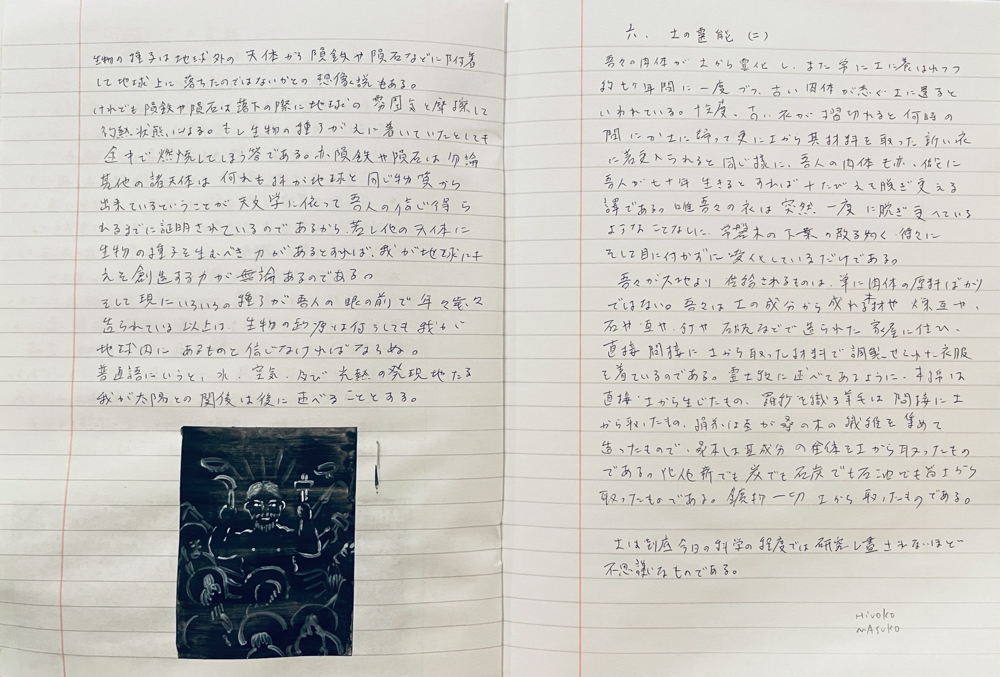 生物の種子は地球外の天体から隕鉄や隕石などに附着
して地球上に落ちたのではないかとの想像説もある。
けれども隕鉄や隕石は落下の際に地球の雰囲気と摩擦して
灼熱状態になる。もし生物の種子がえに着いていたとしても
途中で燃焼してしまう筈である。亦隕鉄や隕石は勿論
其他の諸天体は何れも我が地球と同じ物質から
出来ているということが天文学に依って吾人の信じ得ら
れるまでに証明されているのであるから、若し他の天体に
生物の種子を生むべき力があるとすれば、我が地球にも
えを創造する力が無論あるのである。
そして現にいろいろの種子が吾人の眼の前で年々歳々
造られている以上は、生物の起原は何うしても我が
地球内にあるものと信じなければならぬ。
普通語にいうと、水、空気、及び光熱の発現地たる
我が太陽との関係は後に述べることとする。
六、土の霊能(二)
吾々の肉体が土から霊化し、また常に土に養はれつつ
約七ケ年間に一度づつ、古い肉体が悉く土に還ると
いわれている。恰度、古い衣が摺切れると何時の
間にか土に帰って更に土から其材料を取った新い衣
に着更へられると同じ様に、吾人の肉体も亦、仮に
吾人が七十年生きるとすれば十たびえを脱ぎ更える
譯である。唯吾々の衣は突然一度に脱ぎ更へている
ようなことなしに、常磐木の下葉の散る如く、徐々に
そして目に付かずに変化しているだけである。
吾々が大地より供給されるものは、単に肉体の原料ばかり
ではない。吾々は土の成分から成れる森材や煉瓦や、
石や瓦や、釘や石灰などで造られた家屋に住ひ、
直接間接に土から取った材料で調製せられた衣服
を着ているのである。霊土教に述べてあるように、木綿は
直接土から生じたもの、羅紗を織る羊毛は間接に土
から取ったもの、絹糸は蚕が桑の木の繊維を集めて
造ったもので、桑木は其成分の全体を土から取ったもの
である。其他薪でも炭でも石炭でも石油でも皆土から
取ったものである。鑛物一切土から取ったものである。
土は到底今日の科学の程度では研究し盡されないほど
不思議なものである。
Hiroko
MASUKO